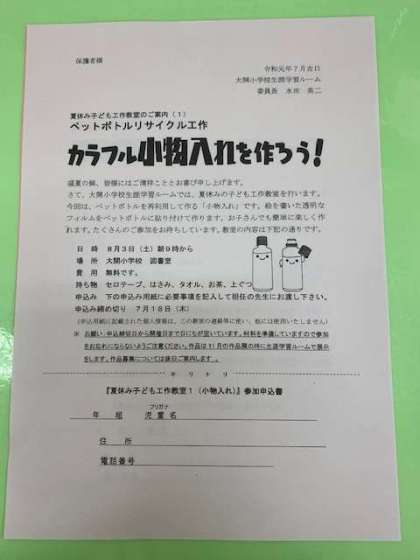 保護者様
令和元年7月吉日
大開小学校生涯学習ルーム
委員長 水田 英二
夏休み子ども工作教室のご案内(1)
ペットボトルリサイクル工作
カラフル小物入れを作ろう!
盛夏の候、皆様にはご清祥こととお喜び申し上げます。
さて、大開小学校生涯学習ルームでは、夏休みの子ども工作教室を行います。
今回は、ペットボトルを再利用して作る「小物入れ」です。絵を書いた透明な
フィルムをペットボトルに貼り付けて作ります。お子さんでも簡単に楽しく作
れます。たくさんのご参加をお待ちしています。教室の内容は下記の通りです。
日 時 8月3日(土)朝9時から
場 所 大開小学校 図書室
費 用 無料です。
持ち物 セロテープ、はさみ、タオル、お茶、上ぐつ
申込み 下の申込み用紙に必要事項を記入して担任の先生にお渡し下さい。
申込み締め切り 7月18日(木)
(申込用紙に記載された個人情報は、この教室の連絡等に使い、他には使用いたしません)
※ お願い、申込締切日から開催日まで日にちが空いています。材料を準備していますので参加
をお忘れにならないようご注意ください。作品は11月の作品展の時に生涯学習ルームで展示
をします。作品募集については後日ご案内します。
キリトリ
『夏休み子ども工作教室1(小物入れ)』参加申込書
フリガナ
年 組 児童名
住 所
電話番号